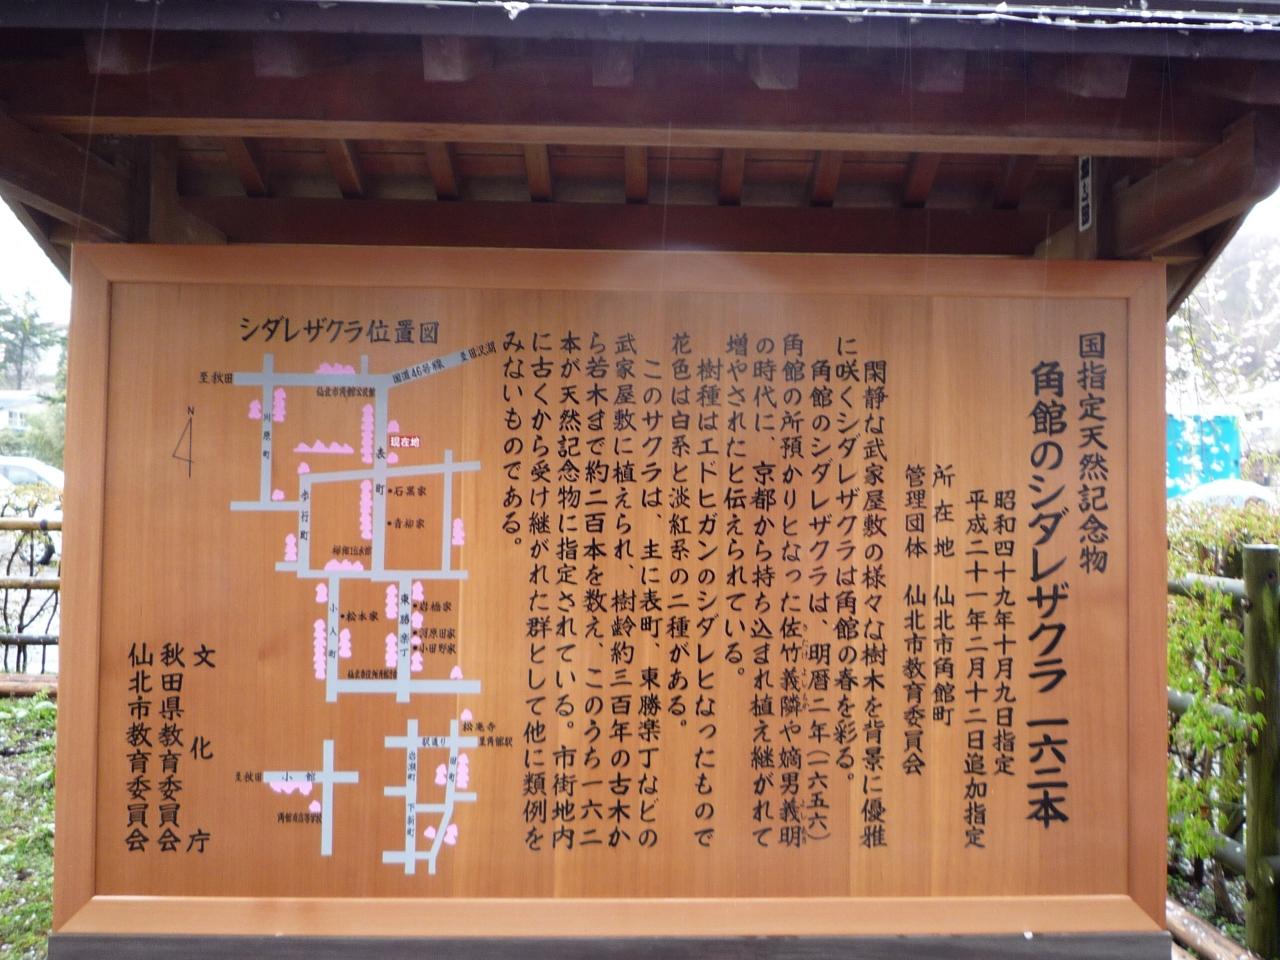 国指定天然記念物
角館のシダレザクラ 一六二本
昭和四十九年十月九日指定
平成二十一年二月十二日追加指定
所在地 仙北市角館町
管理団体 仙北市教育委員会
閑静な武家屋敷の様々な樹木を背景に優雅
に咲くシダレザクラは角館の春を彩る。
角館のシダレザクラは、明暦二年(一六五六)
角館の所預かりとなった佐竹義隣や嫡男義明
の時代に、京都から持ち込まれ植え継がれて
増やされたと伝えられている。
樹種はエドヒガンのシダレとなったもので
花色は白系と淡紅系の二種がある。
このサクラは、主に表町、東勝楽丁などの
武家屋敷に植えられ、樹齢約三百年の古木か
ら若木まで約二百本を数え、このうち一六二
本が天然記念物に指定されている。市街地内
に古くから受け継がれた群として他に類例を
みないものである。
シダレザクラ位置図
至田沢湖
国道46号線
至秋田
仙北市角館公民館
N
川原町
現在地
表町
歩行町
石黒家
青柳家
樺細工伝承館
小人町
松本家
東勝楽丁
岩橋家
河原田家
小田野家
松庵寺
駅通り
至角館駅
岩瀬町
田町
下新町
至秋田
小館
角館高等学校
文化庁
秋田県教育委員会
仙北市教育委員会